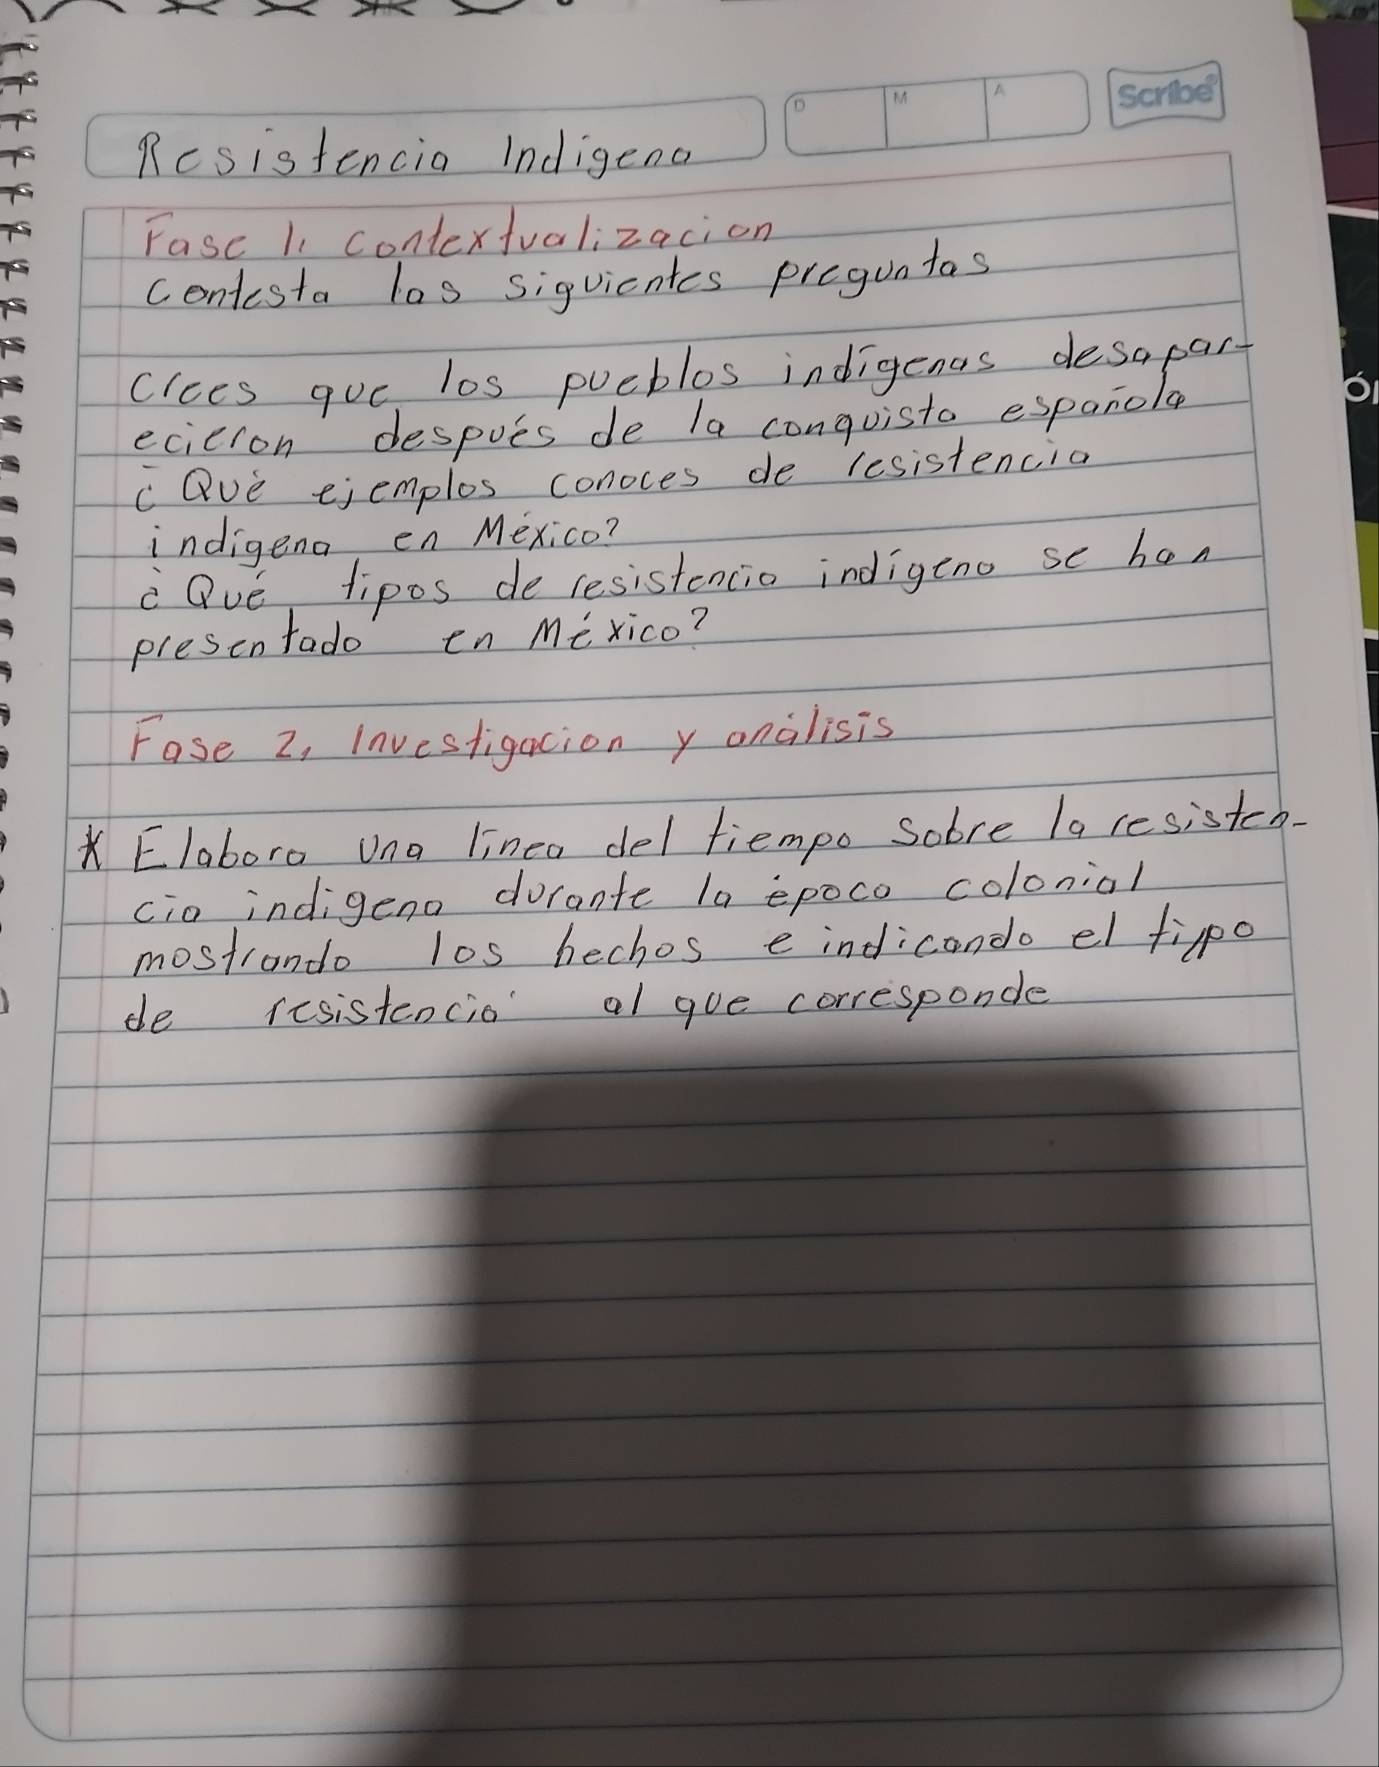 Scribe
D M A
Resistencia Indigena
Fase 1. contextualizacion
contesta las siguientes preguntas
Crees que los pueblos indígenas desapar-
ecieron después de la conquista española
¿Qué ejemplos conoces de resistencia
indígena en México?
¿Qué tipos de resistencia indígena se han
presentado en México?
Fase 2. Investigacion y análisis
* Elabora una linea del tiempo sobre la resisten-
cia indigena durante la época colonial
mostrando los hechos e indicando el tipo
de resistencia al que corresponde